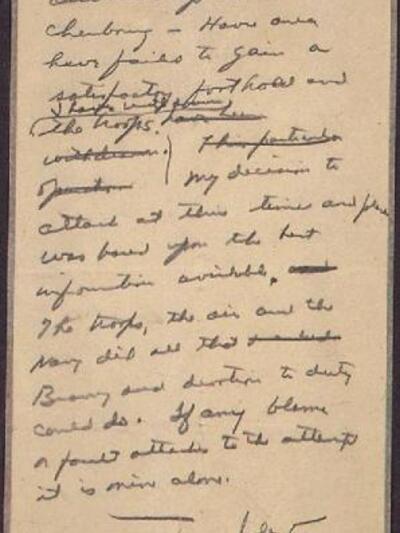 Cherbourg - Havre area
have failed to gain a
satisfactory foothold and
I have withdrawn
the troops. have been
withdrawn. This particular
operation My decision to
attack at this time and place
was based upon the best
information available, and
The troops, the air and the
Navy did all that
Bravery and devotion to duty
could do. If any blame
or fault attaches to the attempt
it is mine alone.